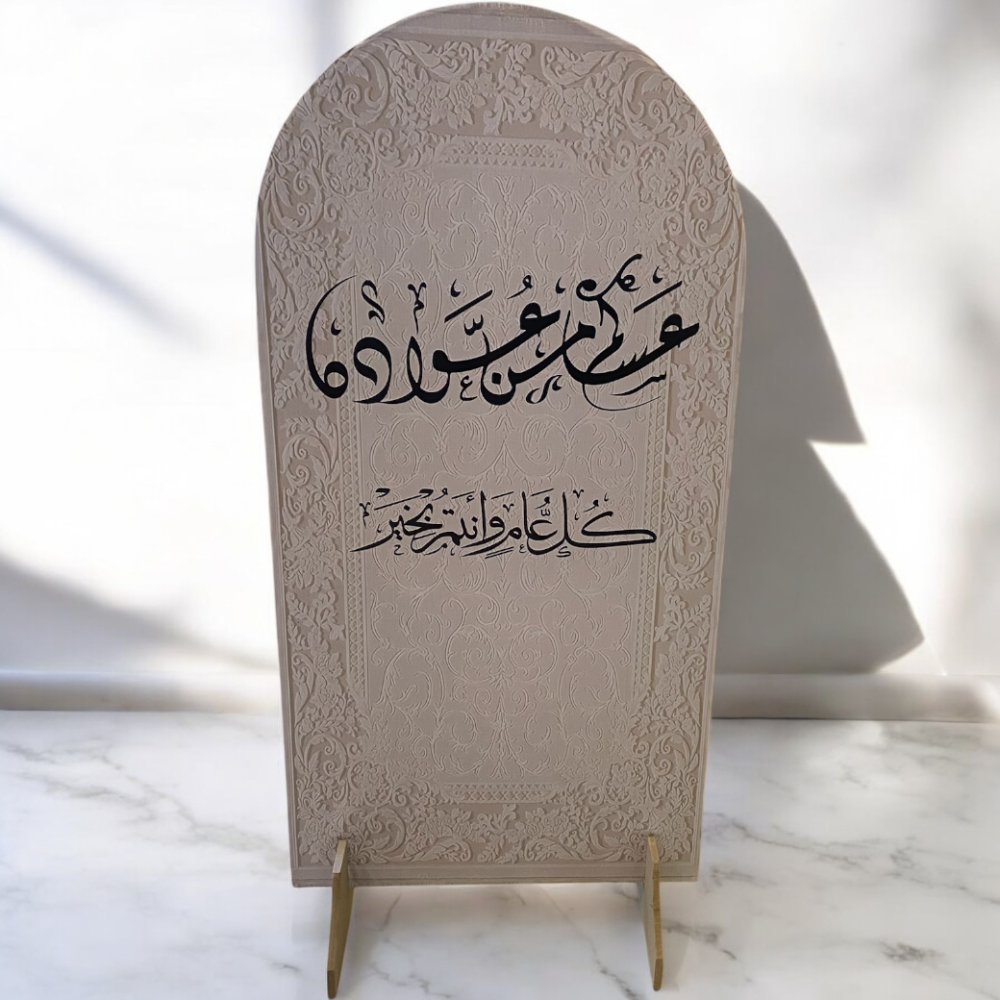 عساكم من عواده
كُل عَّام وَأنتمُ بخَيَر